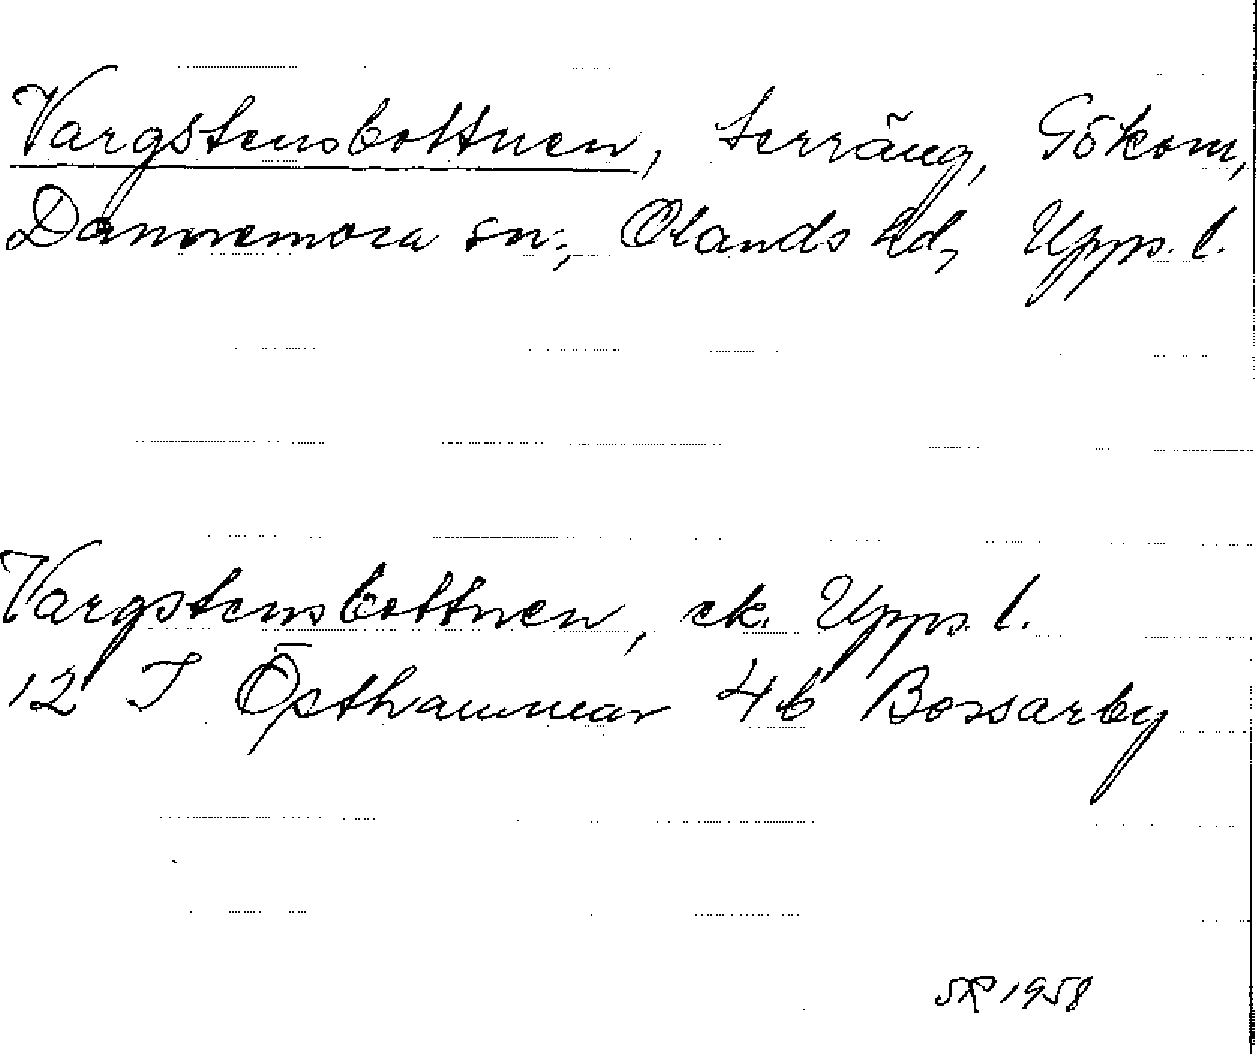 Vargstensbottnen, terräng, Gökom,
Dannemora sn., Olands hd, Upps. l.
Vargstensbottnen, ek. Upps. l.
12 I Östhammar 4b Bossarby
SR 1958